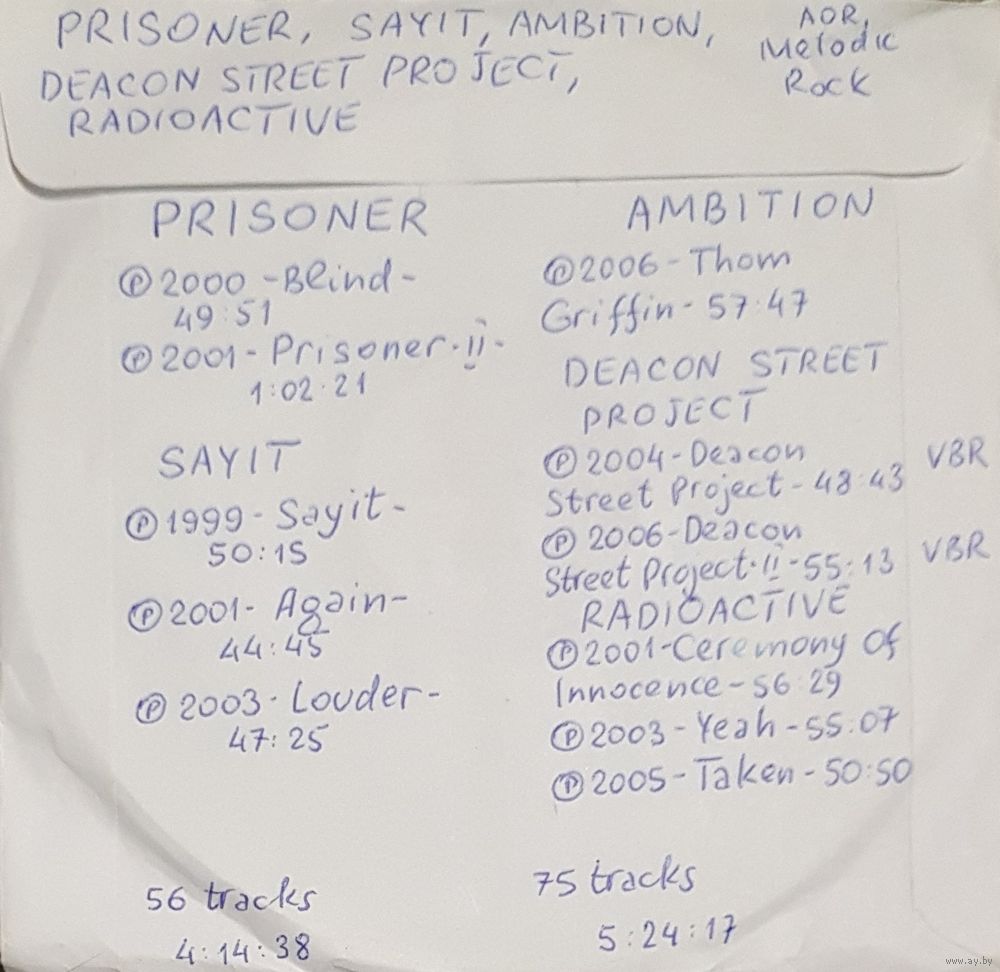 PRISONER, SAYIT, AMBITION,
DEACON STREET PROJECT,
RADIOACTIVE
AOR,
Melodic
Rock
PRISONER
℗2000-Blind-
49:51
℗2001-Prisoner·II-
1:02:21
SAYIT
℗1999-Sayit-
50:15
℗2001-Again-
44:45
℗2003-Louder-
47:25
56 tracks
4:14:38
AMBITION
℗2006-Thom
Griffin-57:47
DEACON STREET
PROJECT
℗2004-Deacon
Street Project-48:43 VBR
℗2006-Deacon
Street Project·II-55:13 VBR
RADIOACTIVE
℗2001-Ceremony Of
Innocence-56:29
℗2003-Yeah-55:07
℗2005-Taken-50:50
75 tracks
5:24:17
www.ay.by